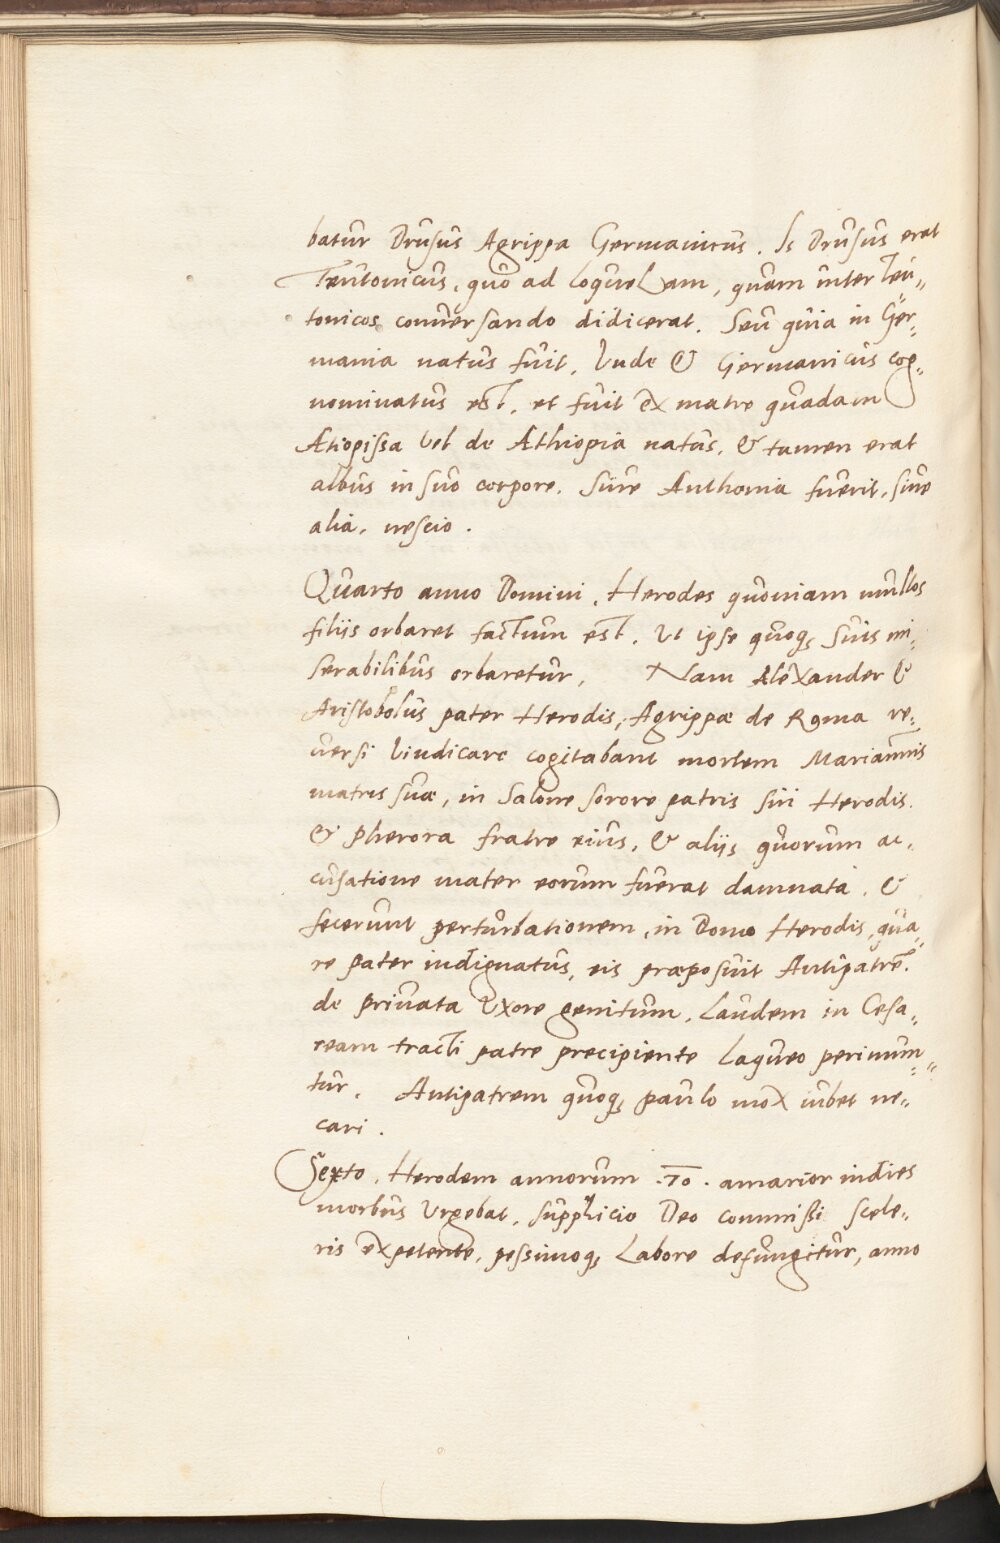 batur Drusus Agrippa Germanicus. Is Drusus erat
Teutonicus, quo ad loquelam, quam inter Teu„
tonicos conuersando didicerat. Seu quia in Ger„
mania natus fuit, Vnde & Germanicus cog„
nominatus est, et fuit ex matre quadam
Ætiopissa vel de Æthiopia natus, & tamen erat
albus in suo corpore. Siue Anthonia fuerit, siue
alia, nescio.
Quarto anno Domini, Herodes quoniam multos
filiis orbaret factum est, Ut ipse quoq; suis mi„
serabilibus orbaretur, Nam Alexander &
Aristobolus pater Herodis, Agrippæ de Roma re„
uersi Vindicare cogitabant mortem Mariannis
matris suæ, in Salone sorore patris sui Herodis.
& Pherora fratre eius, & aliis quorum ac„
cusatione mater eorum fuerat damnata, &
fecerunt perturbationem, in Domo Herodis, qua„
re pater indignatus, eis præposuit Antipatrē.
de priuata Uxore genitum, Laudem in Cesa„
ream tracti patre precipiente Laqueo perimun„
tur. Antipatrem quoq; paulo mox iubet ne„
cari.
Sexto, Herodem annorum .70. amarior indies
morbus Urgebat, supplicio Deo commissi scele„
ris expetente, pessimoq; Labore defungitur, anno